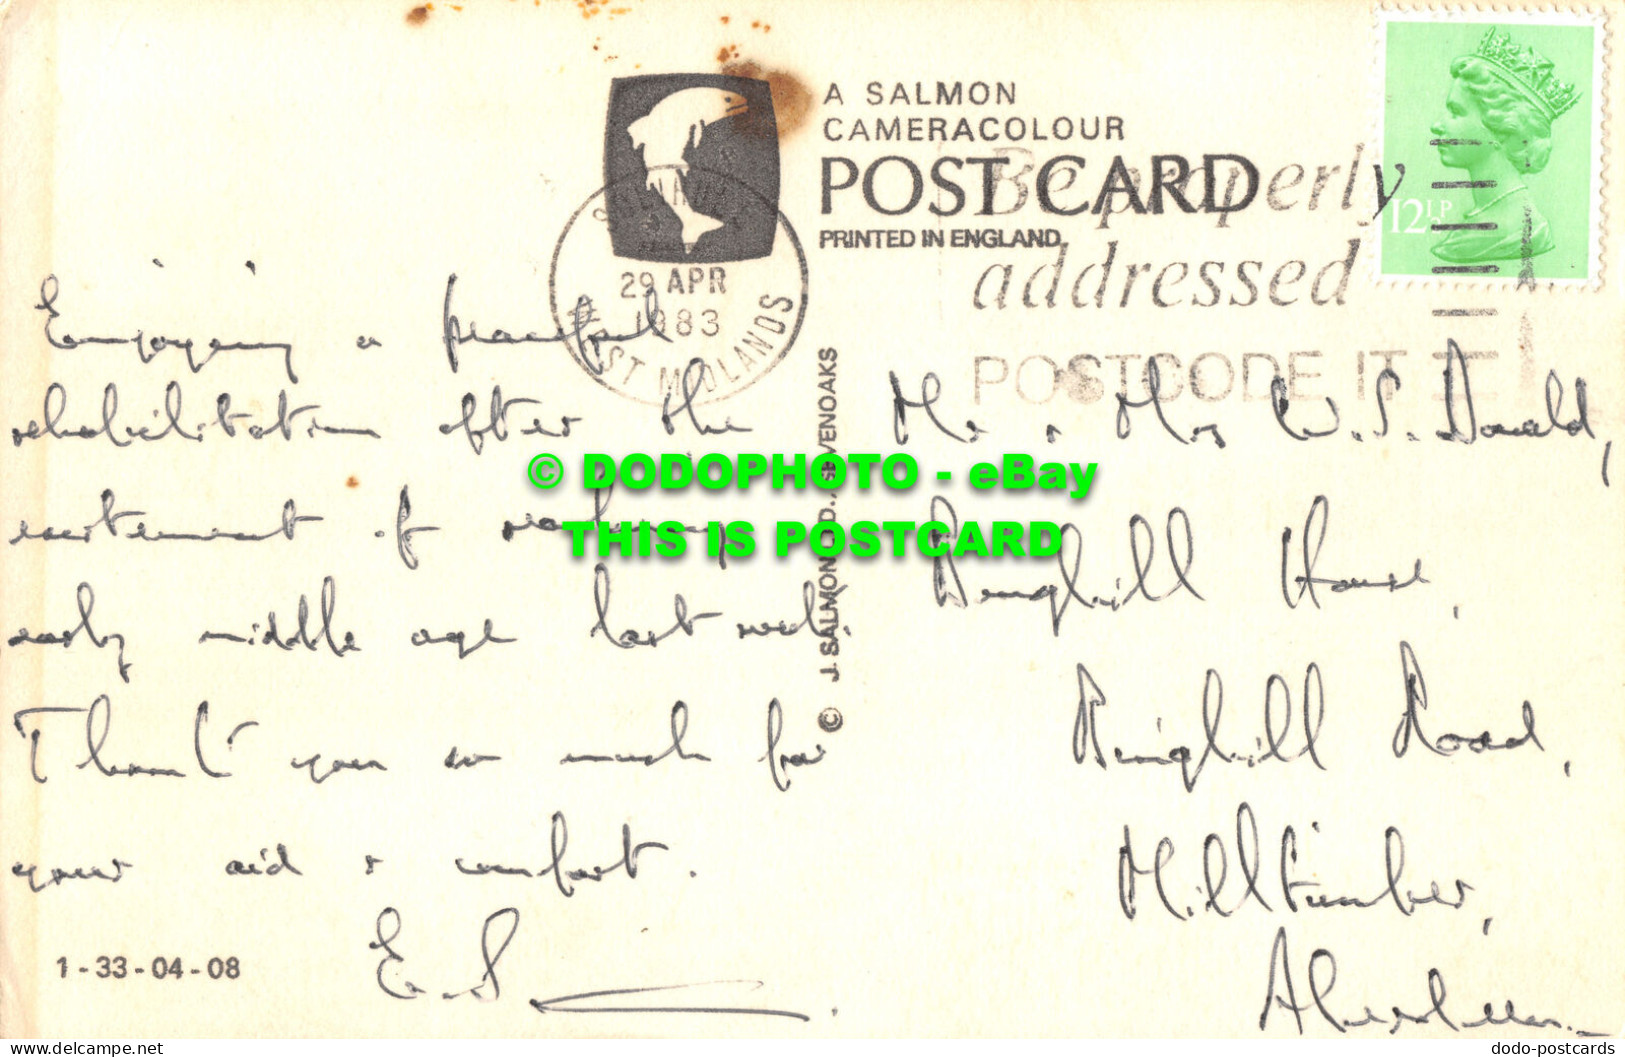 A SALMON
CAMERACOLOUR
POST CARD
PRINTED IN ENGLAND
Be properly
addressed
POSTCODE IT
12½P
29 APR
1983
EAST MIDLANDS
Enjoying a peaceful
rehabilitation after the
excitement of reaching
early middle age last week.
Thank you so much for
your aid & comfort.
E.S
1-33-04-08
© J. SALMON LTD., SEVENOAKS
Mr & Mrs W.S. Donald,
Binghill House,
Binghill Road,
Milltimber,
Aberdeen.
© DODOPHOTO - eBay
THIS IS POSTCARD
delcampe.net
dodo-postcards